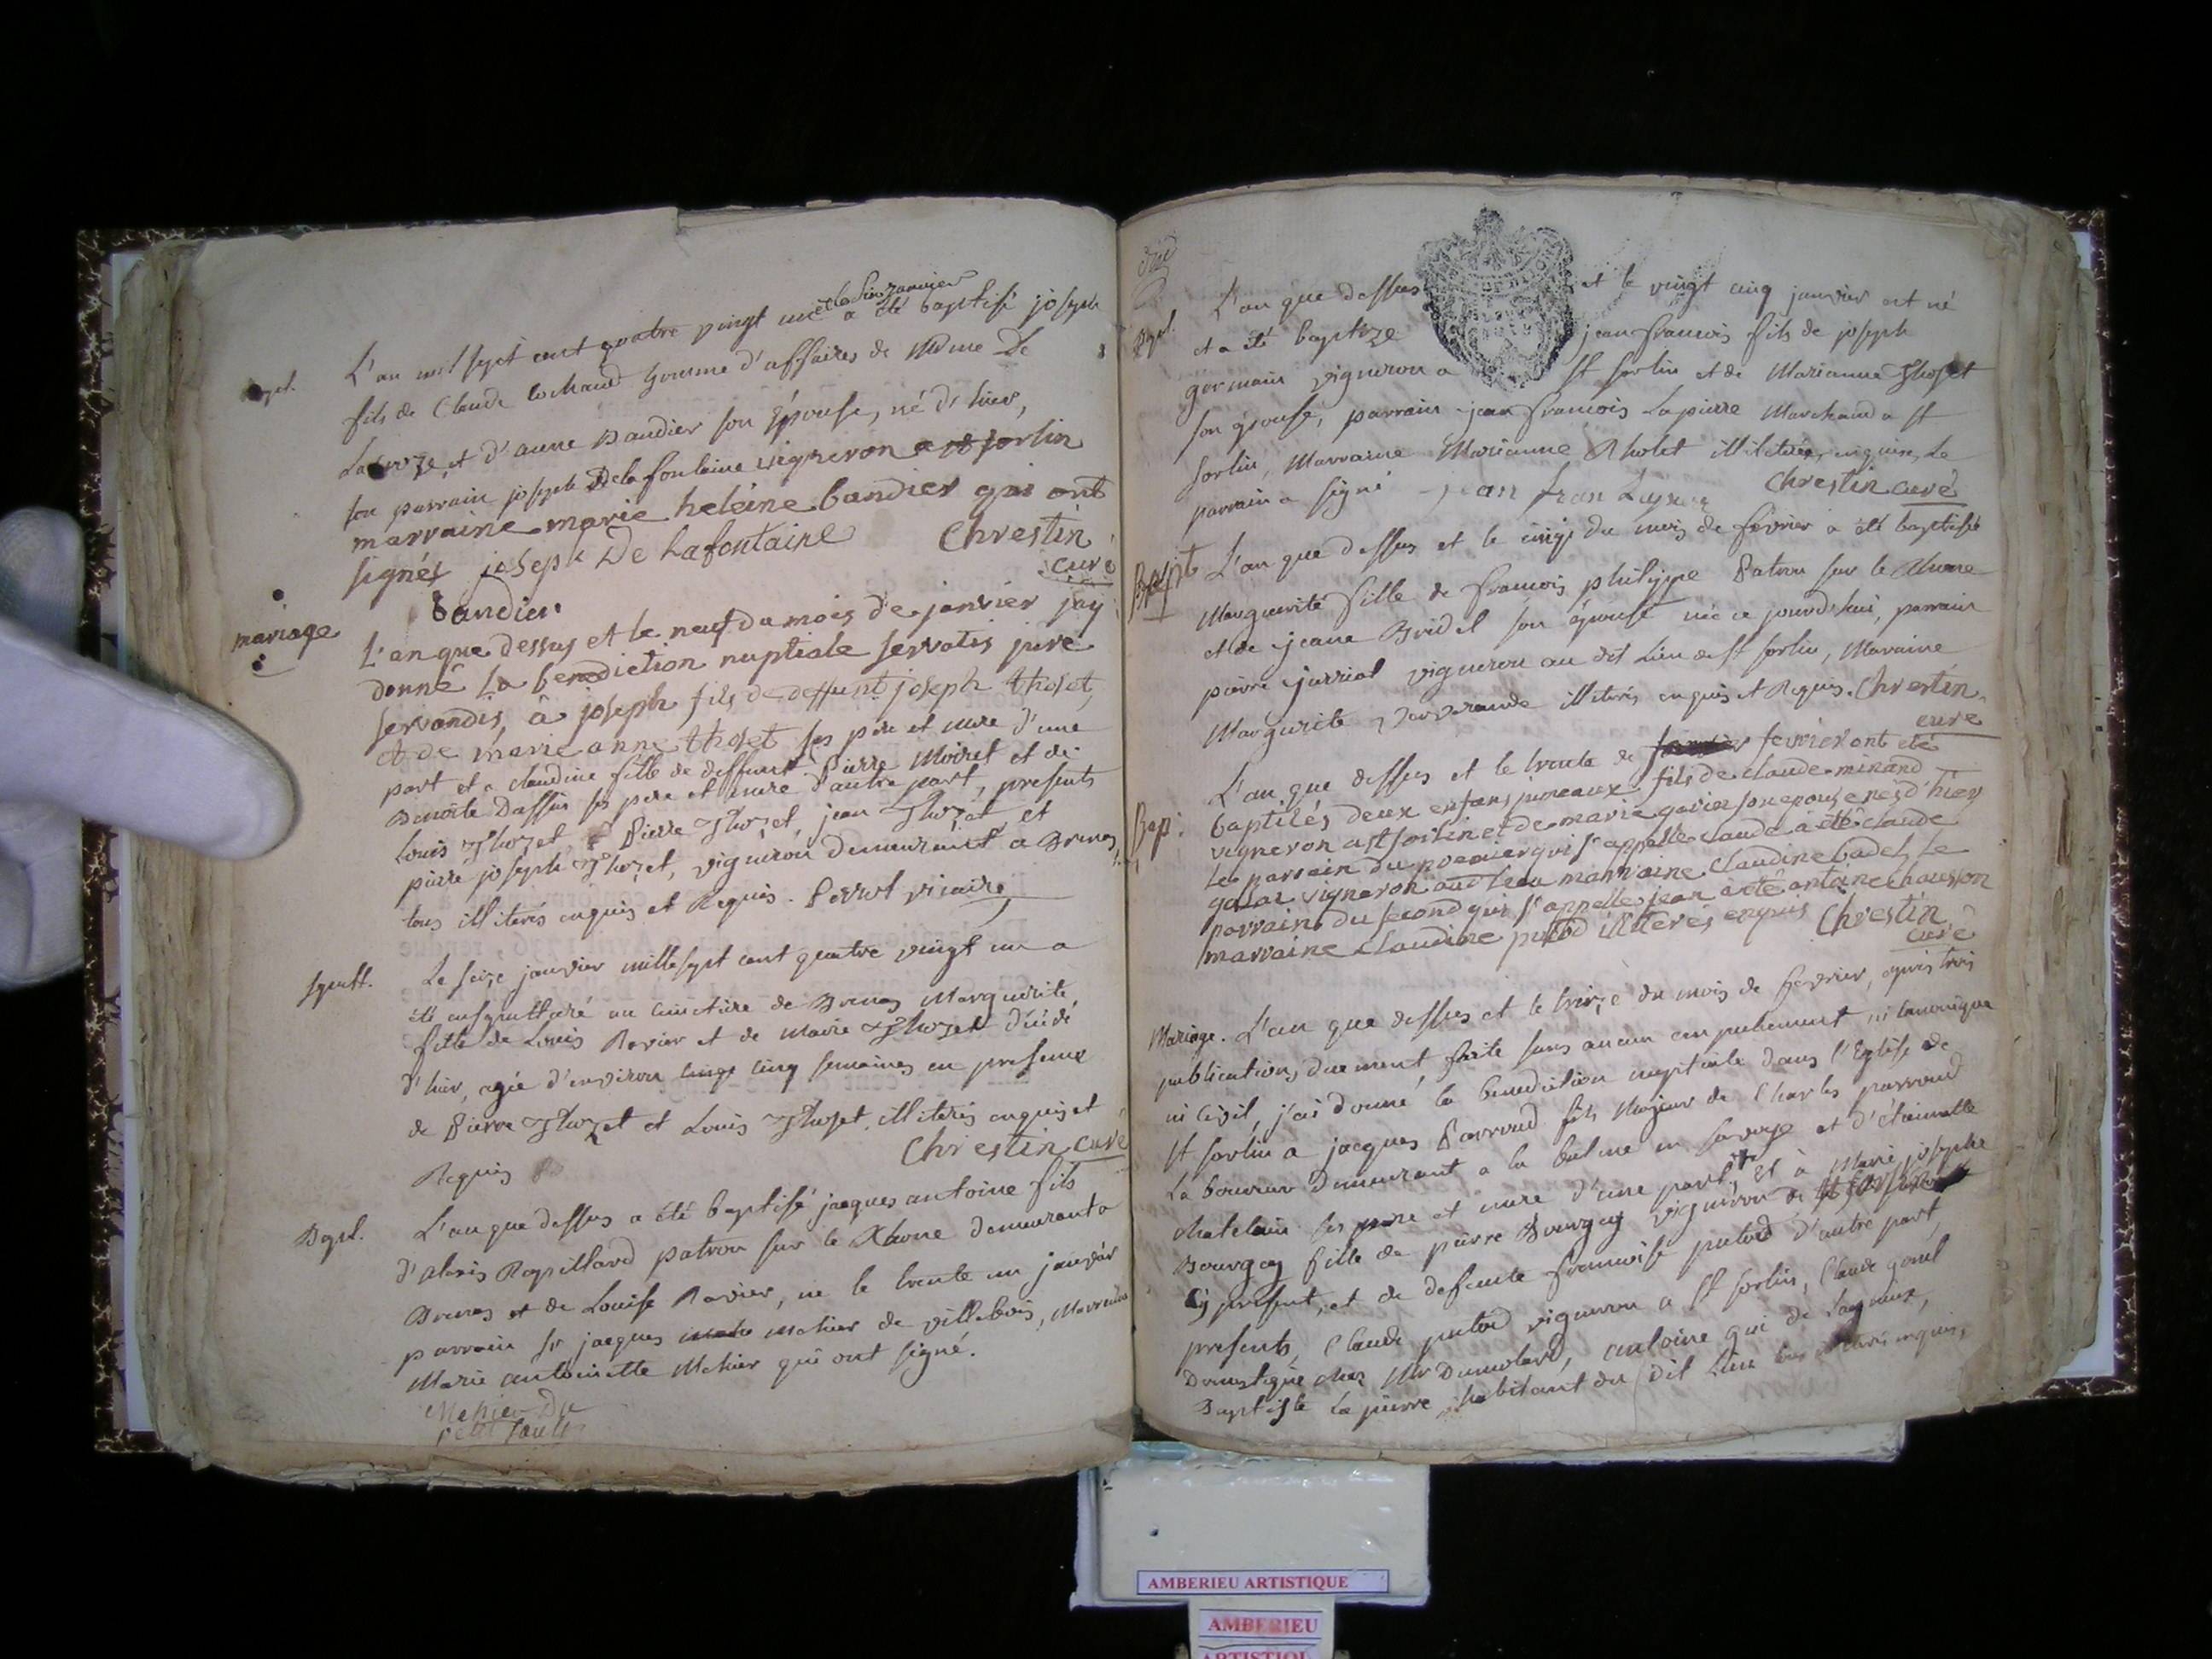 Bapt. L'an mil sept cent quatre vingt un et le six janvier a été baptisé joseph
fils de Claude lochaud homme d'affaires de Mdme De
et d'anne Baudier son Épouse, né d'hier,
son parrain joseph De la fontaine vigneron a st sorlin
marraine marie heléine bandier qui ont
signés joseph De Lafontaine Chrestin
curé
bandier
mariage L'an que dessus et le neuf du mois de janvier jay
donné la benediction nuptiale servatis jure
servandis, â joseph fils de deffunt joseph thoset,
et de marie anne thoset ses pere et mere d'une
part et a claudine fille de deffunt Pierre Moiret et de
Benoite Daffin ses pere et mere d'autre part, presents
Louis Thozet, Pierre Thozet, jean Thozet et
pierre joseph Thozet, vigneron demeurant a Brenas,
tous illiterés enquis et Requis. Perrot vicaire
sepult. Le seize janvier mille sept cent quatre vingt un a
été ensepulturé au cimetiere de Brenas Marguerite,
fille de Louis Ravier et de Marie Thozet décédé
d'hier, agée d'environ cinq semaines en presence
de Pierre Thozet et Louis Thoset illiterés enquis et
Requis Chrestin curé
Bapt. L'an que dessus a été baptisé jacques antoine fils
d'alexis Rapillard patron sur le Rhone demeurant a
Brenas et de Louise Ravier, né le trente un janvier
parrain sr jacques Mehier de villebois, Marraine
Marie antoinette Mehier qui ont signé.
Mehier Du
petit Sault
Bapt. L'an que dessus et le vingt cinq janvier est né
et a été baptize jean francois fils de joseph
germain vigneron a St sorlin et de Marianne Thoset
son épouse, parrain jean francois Lapierre Marchand a St
sorlin, Marraine Marianne Rholet illiterée, enquise, Le
parrain a signé jean fran Lapierre Chrestin curé
Bapt L'an que dessus et le cinq du mois de fevrier a été baptisé
Marguerite fille de francois philippe Patron sur le Rhone
et de jeane Bridel son épouse née ce jourd'hui, parrain
pierre jurriat vigneron au dit Lieu de St sorlin, Maraine
Marguerite illiterés enquis et Requis. Chrestin
curé
L'an que dessus et le trente de fevrier ont eté
Bap: baptisés deux enfans jumeaux fils de claude minand
vigneron a St sorlin et de marie gavier son epouse nés d'hier
Le parrain du premier qui s'appelle claude a été claude
vigneron audit Lieu marraine claudine cadet, Le
parrain du second qui s'appelle jean a été antoine chausson
marraine claudine putod illiterés enquis Chrestin
curé
Mariage. L'an que dessus et le treize du mois de fevrier, après trois
publications, duement faite sans aucun empechement ni canonique
ni civil, j'ai donné la benediction nuptiale dans l'Eglise de
St sorlin a jacques Parroud fils Majeur de Charles parroud
Laboureur demeurant a la balme en savoye et d'étiennette
chatelain ses pere et mere d'une part, Et à Marie josephe
Bourgey fille de pierre Bourgey vigneron de
cy present, et de defunte francoise putod d'autre part,
presents, Claude putod vigneron a St sorlin, Claude
Domestique chez Mr Dumolard, antoine gui de Lagnieux,
Baptiste Lapierre habitant du dit Lieu tous illiterés enquis,
AMBERIEU ARTISTIQUE
AMBERIEU
ARTISTIQUE